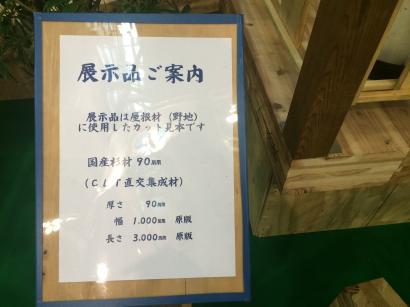 展示品ご案内
展示品は屋根材（野地）
に使用したカット見本です
国産杉材 90㎜用
（CLT直交集成材）
厚さ 90㎜
幅 1.000㎜ 原版
長さ 3.000㎜ 原版